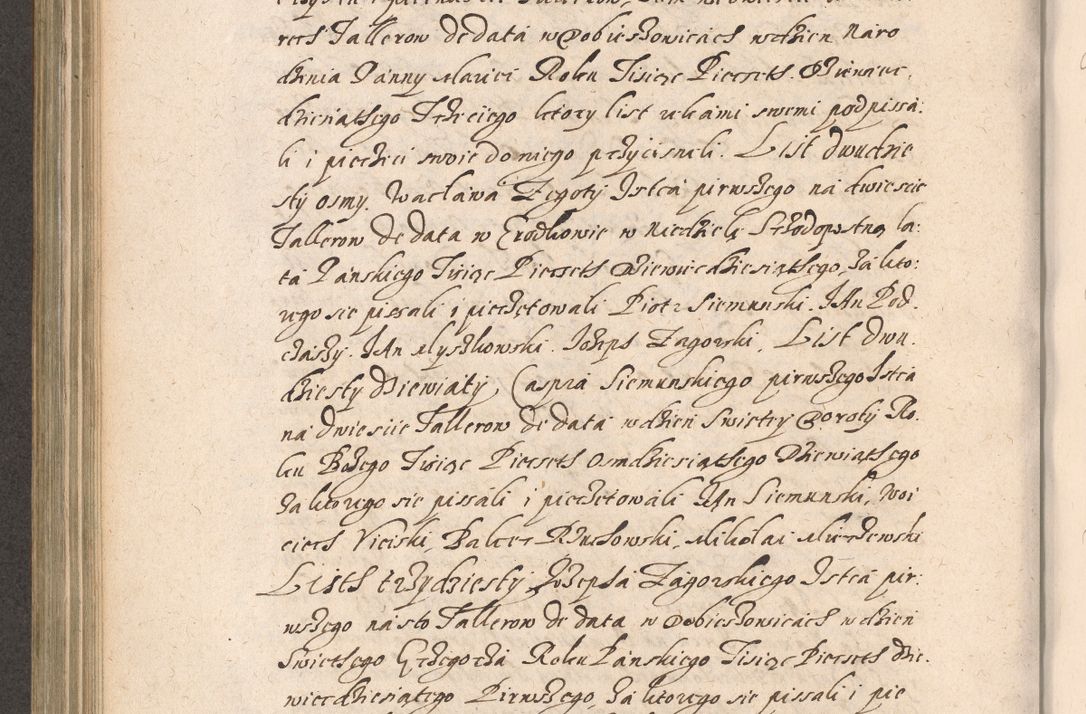 rech Tallerow de data w Dobieszowicach w dzien Naro
dzenia Panny Mariei Roku Tisiąc Piecseth Dziewięc
dziesiąthego Trzeciego ktory list rękami swemi podpissa:
li i pieczęci swoie do niego przycisneli. List dwudzie
sty osmy. Wacława Zegoty Istca pirwszego na dwiescie
Tallerow de data w Grodkowie w Niedzielę Srzodopostną la:
ta Panskiego Tisiąc Piecseth Dziewiędziesiąthego, Za kto:
rego się pissali i pieczętowali Piotr Siemunski. JAn Pod
czaszy. JAn Myszkowski. Jozeps Zagorski. List dwu
dziesty Dziewiąty, Caspra Siemunskiego pirwszego Istca
na dwiescie Tallerow de data w dzien Swiętey Doroty Ro
ku Bożego Tisiąc Piecseth Osmdziesiąthego Dziewiąthego
Za ktorego się pissali i pieczętowali JAn Siemunski, Woi
ciech Viciski, Balcer Rzuchowski, Mikołai Mierzewski
Listh trzydziesty Jozepha Zagorskiego Istca pir:
wszego na sto Tallerow de data w Dobieszowicach w dzien
Swięthego Grzegorza Roku Panskiego Tisiąc Piecseth dzie
więcdziesiątego Pirwszego, Za ktorego się pissali i pie